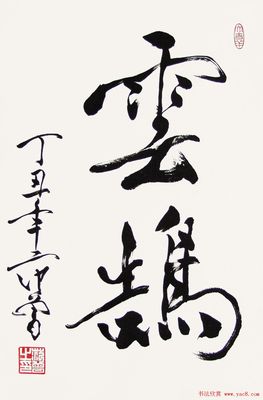 雲鵠
丁丑年范曾
书法欣赏 www.yac8.com